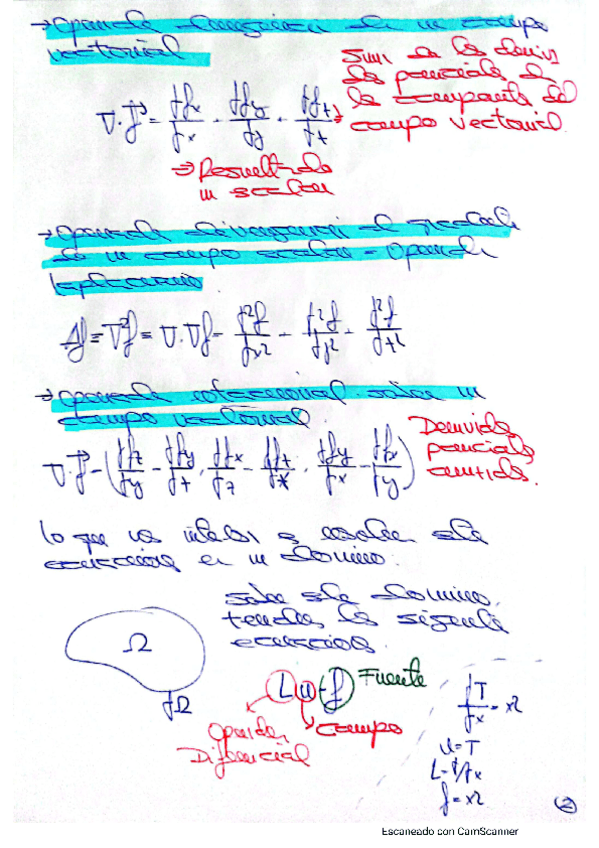 → Operador divergencia de un campo
vectorial
Suma de las deriva
das parciales de
las componentes del
campo vectorial.
∇·f⃗ = ∂fx/∂x + ∂fy/∂y + ∂fz/∂z →
⇒ Resultado
un escalar
→ Operador divergencia del gradiente
de un campo escalar - Operador
Laplaciano
Δf = ∇²f = ∇·∇f = ∂²f/∂x² + ∂²f/∂y² + ∂²f/∂z²
→ Operador rotacional sobre un
campo vectorial.
Derivadas
parciales
cruzadas.
lo que va resolver
ecuaciones en un dominio.
sobre este dominio,
tendrá la siguiente
ecuación
Ω
∂Ω
Lu = f Fuente
Operador campo
Diferencial
∂T/∂x = x2
u = T
L = ∂/∂x
f = x2
2
Escaneado con CamScanner